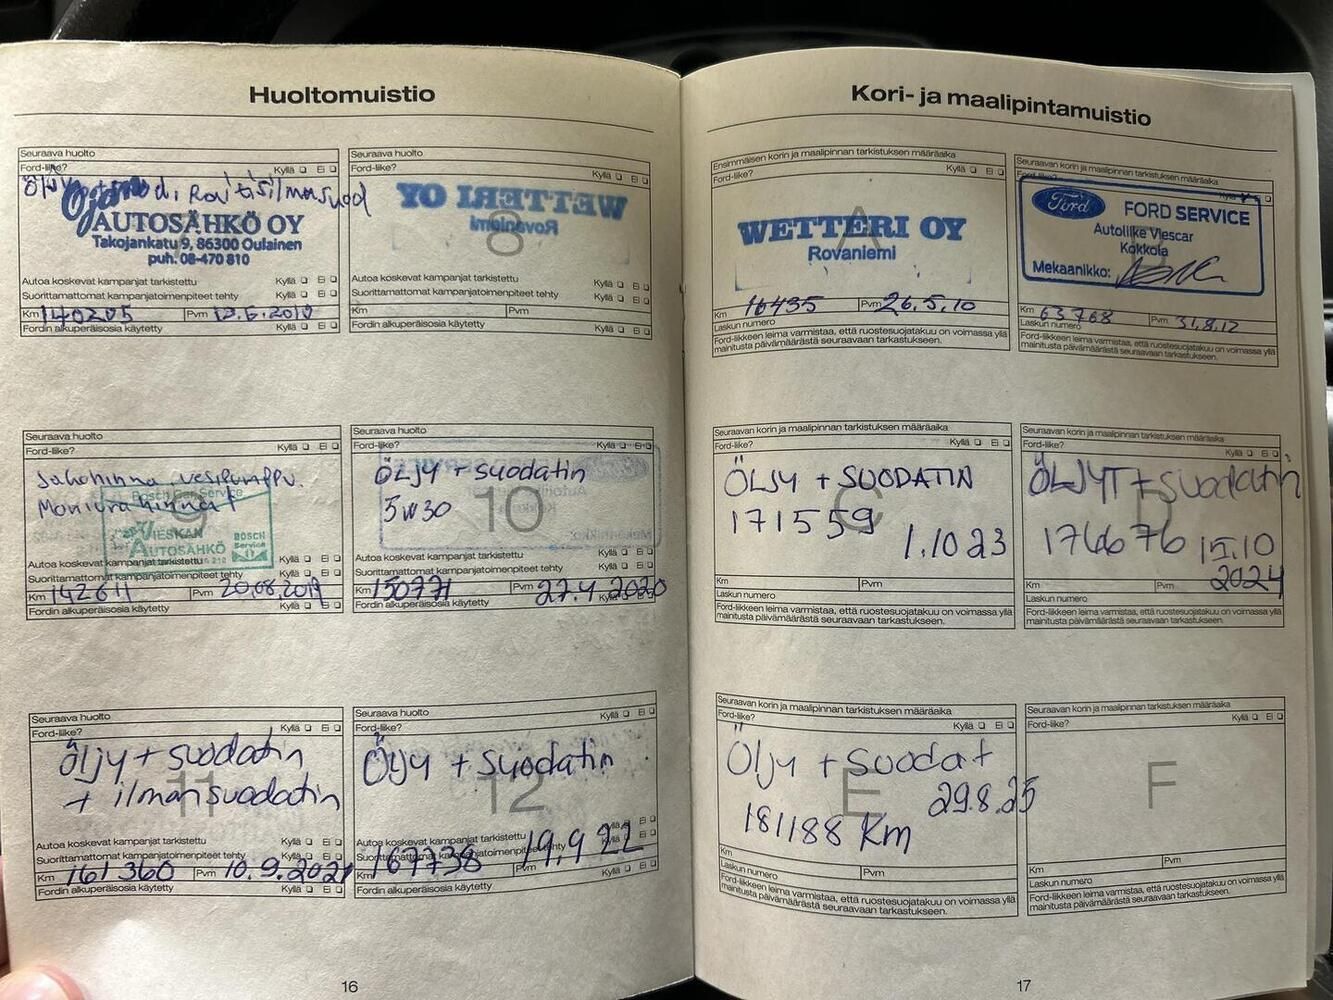 Huoltomuistio
Seuraava huolto
Ford-liike?
Kyllä Ei
AUTOSÄHKÖ OY
Takojankatu 9, 86300 Oulainen
puh. 08-470 810
Autoa koskevat kampanjat tarkistettu Kyllä Ei
Suorittamattomat kampanjatoimenpiteet tehty Kyllä Ei
Km 140205 Pvm
Fordin alkuperäisosia käytetty Kyllä Ei
Seuraava huolto
Ford-liike? Kyllä Ei
WETTERI OY
Rovaniemi
8
Autoa koskevat kampanjat tarkistettu Kyllä Ei
Suorittamattomat kampanjatoimenpiteet tehty Kyllä Ei
Km Pvm
Fordin alkuperäisosia käytetty Kyllä Ei
Seuraava huolto
Ford-liike? Kyllä Ei
Jakohihna, vesipumppu.
Moniura hihnat
9
Bosch Car Service
VIESKAN
AUTOSÄHKÖ
BOSCH
Service
Autoa koskevat kampanjat tarkistettu Kyllä Ei
Suorittamattomat kampanjatoimenpiteet tehty Kyllä Ei
Km 142611 Pvm 20.08.2019
Fordin alkuperäisosia käytetty Kyllä Ei
Seuraava huolto
Ford-liike? Kyllä Ei
ÖLJY + suodatin
5W30
10
Autoa koskevat kampanjat tarkistettu Kyllä Ei
Suorittamattomat kampanjatoimenpiteet tehty Kyllä Ei
Km 150771 Pvm 27.4.2020
Fordin alkuperäisosia käytetty Kyllä Ei
Seuraava huolto
Ford-liike? Kyllä Ei
Öljy + suodatin
+ ilmansuodatin
11
Autoa koskevat kampanjat tarkistettu Kyllä Ei
Suorittamattomat kampanjatoimenpiteet tehty Kyllä Ei
Km 161360 Pvm 10.9.2021
Fordin alkuperäisosia käytetty Kyllä Ei
Seuraava huolto
Ford-liike? Kyllä Ei
Öljy + suodatin
12
Autoa koskevat kampanjat tarkistettu Kyllä Ei
Suorittamattomat kampanjatoimenpiteet tehty Kyllä Ei
Km 167738 Pvm 19.9 22
Fordin alkuperäisosia käytetty Kyllä Ei
16
Kori- ja maalipintamuistio
Ensimmäisen korin ja maalipinnan tarkistuksen määräaika
Ford-liike? Kyllä Ei
A
WETTERI OY
Rovaniemi
Km 16435 Pvm 26.5.10
Laskun numero
Ford-liikkeen leima varmistaa, että ruostesuojatakuu on voimassa yllä
mainitusta päivämäärästä seuraavaan tarkastukseen.
Seuraavan korin ja maalipinnan tarkistuksen määräaika
Ford-liike? Kyllä Ei
Ford
FORD SERVICE
Autoliike Viescar
Kokkola
Mekaanikko:
Km 63768 Pvm 31.8.12
Laskun numero
Ford-liikkeen leima varmistaa, että ruostesuojatakuu on voimassa yllä
mainitusta päivämäärästä seuraavaan tarkastukseen.
Seuraavan korin ja maalipinnan tarkistuksen määräaika
Ford-liike? Kyllä Ei
ÖLJY + SUODATIN
C
171559
1.10 23
Km Pvm
Laskun numero
Ford-liikkeen leima varmistaa, että ruostesuojatakuu on voimassa yllä
mainitusta päivämäärästä seuraavaan tarkastukseen.
Seuraavan korin ja maalipinnan tarkistuksen määräaika
Ford-liike? Kyllä Ei
ÖLJYT + suodatin
D
176676 15.10
2024
Km Pvm
Laskun numero
Ford-liikkeen leima varmistaa, että ruostesuojatakuu on voimassa yllä
mainitusta päivämäärästä seuraavaan tarkastukseen.
Seuraavan korin ja maalipinnan tarkistuksen määräaika
Ford-liike? Kyllä Ei
Öljy + suodat
E
29.8.25
181188 Km
Km Pvm
Laskun numero
Ford-liikkeen leima varmistaa, että ruostesuojatakuu on voimassa yllä
mainitusta päivämäärästä seuraavaan tarkastukseen.
Seuraavan korin ja maalipinnan tarkistuksen määräaika
Ford-liike? Kyllä Ei
F
Km Pvm
Laskun numero
Ford-liikkeen leima varmistaa, että ruostesuojatakuu on voimassa yllä
mainitusta päivämäärästä seuraavaan tarkastukseen.
17